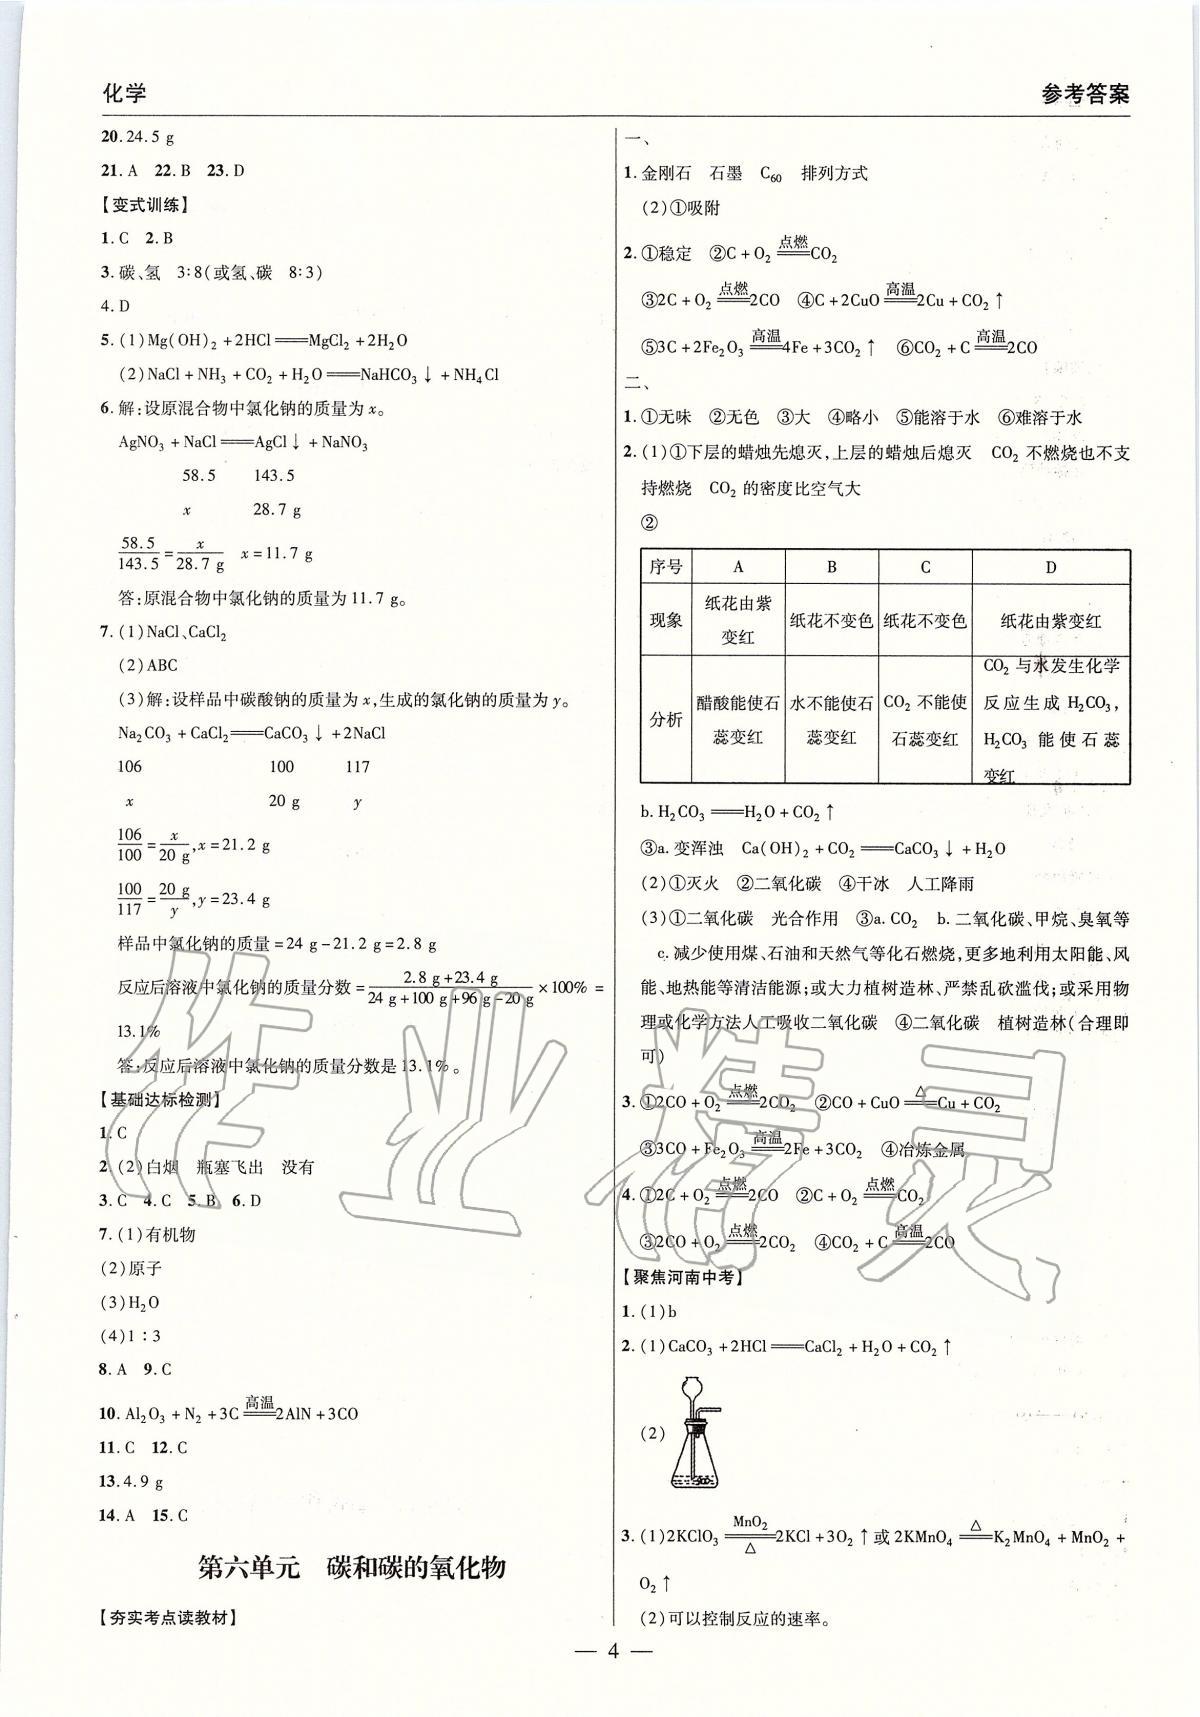 化学
参考答案
20.24.5 g
21.A 22.B 23.D
【变式训练】
1.C 2.B
3.碳、氢 3∶8(或氢、碳 8∶3)
4.D
5.(1)Mg(OH)₂+2HCl══MgCl₂+2H₂O
(2)NaCl+NH₃+CO₂+H₂O══NaHCO₃↓+NH₄Cl
6.解:设原混合物中氯化钠的质量为x。
AgNO₃+NaCl══AgCl↓+NaNO₃
58.5 143.5
x 28.7 g
58.5/143.5=x/28.7 g x=11.7 g
答:原混合物中氯化钠的质量为11.7 g。
7.(1)NaCl、CaCl₂
(2)ABC
(3)解:设样品中碳酸钠的质量为x,生成的氯化钠的质量为y。
Na₂CO₃+CaCl₂══CaCO₃↓+2NaCl
106 100 117
x 20 g y
106/100=x/20 g,x=21.2 g
100/117=20 g/y,y=23.4 g
样品中氯化钠的质量=24 g-21.2 g=2.8 g
反应后溶液中氯化钠的质量分数=(2.8 g+23.4 g)/(24 g+100 g+96 g-20 g)×100%=
13.1%
答:反应后溶液中氯化钠的质量分数是13.1%。
【基础达标检测】
1.C
2.(2)白烟 瓶塞飞出 没有
3.C 4.C 5.B 6.D
7.(1)有机物
(2)原子
(3)H₂O
(4)1∶3
8.A 9.C
10.Al₂O₃+N₂+3C═高温═2AlN+3CO
11.C 12.C
13.4.9 g
14.A 15.C
第六单元 碳和碳的氧化物
【夯实考点读教材】
一、
1.金刚石 石墨 C₆₀ 排列方式
(2)①吸附
2.①稳定 ②C+O₂═点燃═CO₂
③2C+O₂═点燃═2CO ④C+2CuO═高温═2Cu+CO₂↑
⑤3C+2Fe₂O₃═高温═4Fe+3CO₂↑ ⑥CO₂+C═高温═2CO
二、
1.①无味 ②无色 ③大 ④略小 ⑤能溶于水 ⑥难溶于水
2.(1)①下层的蜡烛先熄灭,上层的蜡烛后熄灭 CO₂不燃烧也不支
持燃烧 CO₂的密度比空气大
②
序号 A B C D
现象 纸花由紫变红 纸花不变色 纸花不变色 纸花由紫变红
分析 醋酸能使石蕊变红 水不能使石蕊变红 CO₂不能使石蕊变红 CO₂与水发生化学反应生成H₂CO₃,H₂CO₃能使石蕊变红
b.H₂CO₃══H₂O+CO₂↑
③a.变浑浊 Ca(OH)₂+CO₂══CaCO₃↓+H₂O
(2)①灭火 ②二氧化碳 ④干冰 人工降雨
(3)①二氧化碳 光合作用 ③a.CO₂ b.二氧化碳、甲烷、臭氧等
c.减少使用煤、石油和天然气等化石燃烧,更多地利用太阳能、风
能、地热能等清洁能源;或大力植树造林、严禁乱砍滥伐;或采用物
理或化学方法人工吸收二氧化碳 ④二氧化碳 植树造林(合理即
可)
3.①2CO+O₂═点燃═2CO₂ ②CO+CuO═△═Cu+CO₂
③3CO+Fe₂O₃═高温═2Fe+3CO₂ ④冶炼金属
4.①2C+O₂═点燃═2CO ②C+O₂═点燃═CO₂
③2CO+O₂═点燃═2CO₂ ④CO₂+C═高温═2CO
【聚焦河南中考】
1.(1)b
2.(1)CaCO₃+2HCl══CaCl₂+H₂O+CO₂↑
(2)
3.(1)2KClO₃═MnO₂/△═2KCl+3O₂↑或2KMnO₄═△═K₂MnO₄+MnO₂+
O₂↑
(2)可以控制反应的速率。
— 4 —
作业精灵